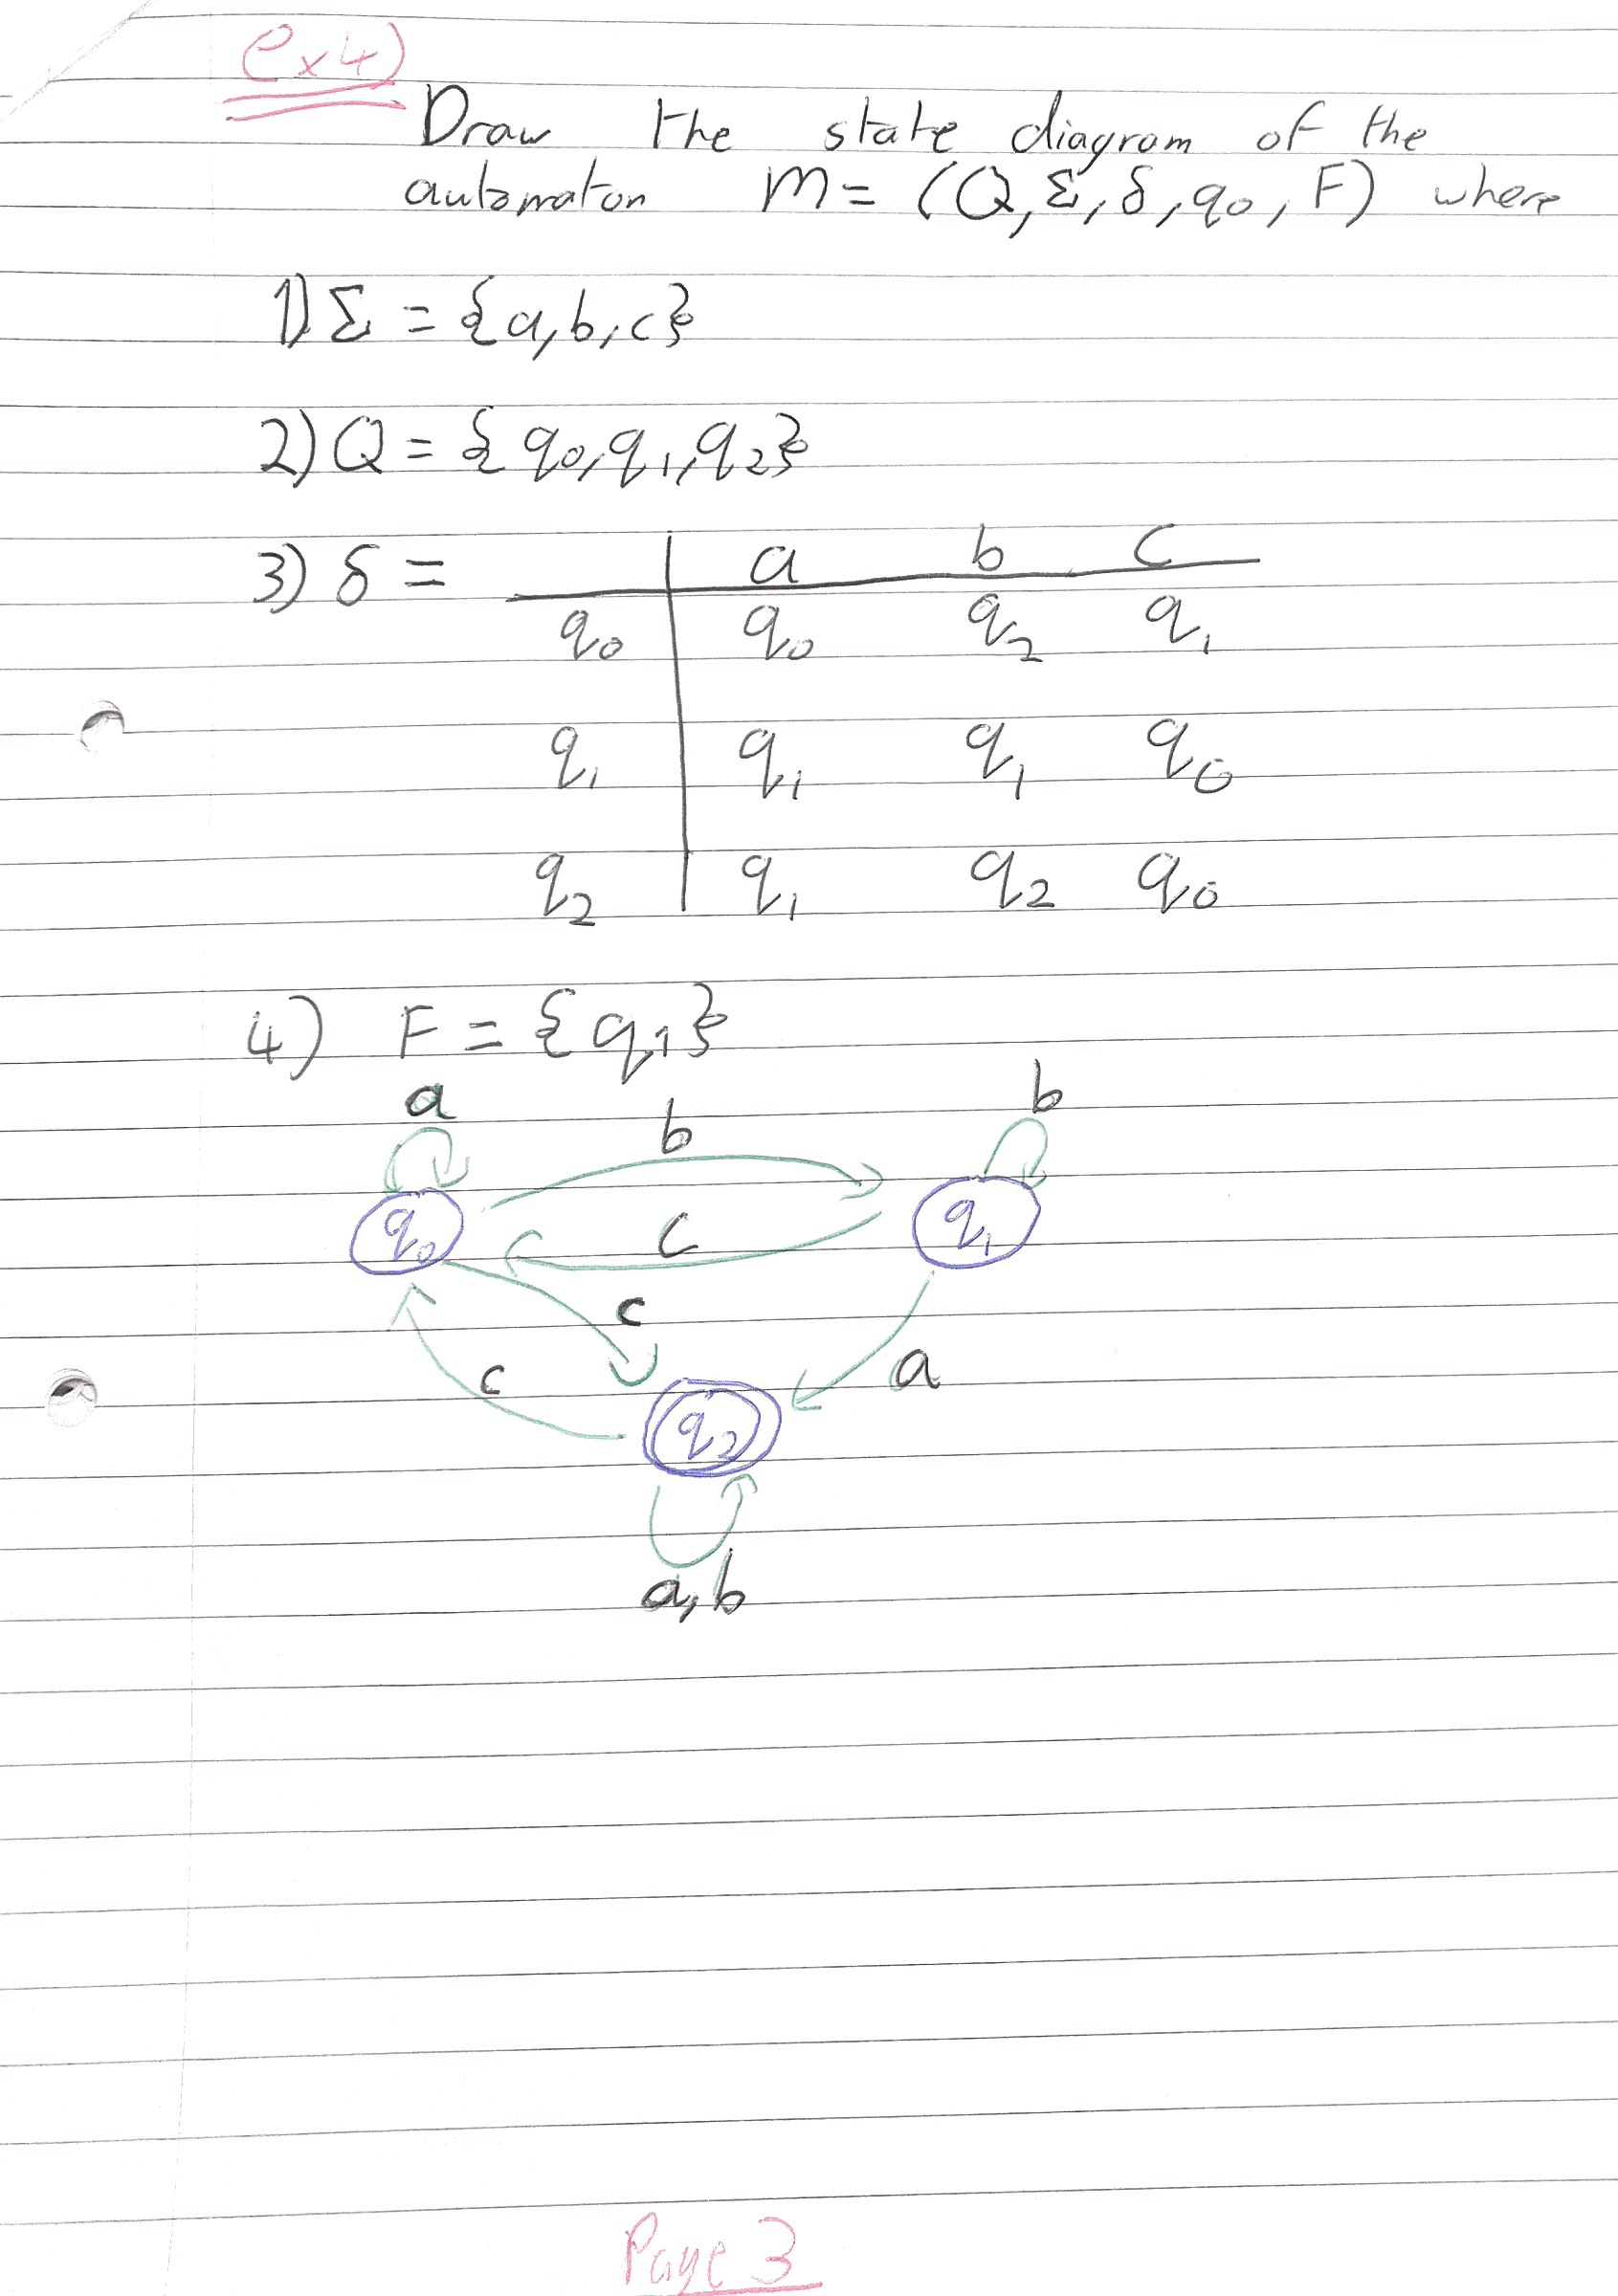 ex4)
Draw the state diagram of the
automaton M = (Q, Σ, δ, q0, F) where
1) Σ = {a, b, c}
2) Q = {q0, q1, q2}
3) δ =
a b c
q0 q0 q2 q1
q1 q1 q1 q0
q2 q1 q2 q0
4) F = {q1}
a b b
q0 c q1
c
c a
q2
a, b
Page 3